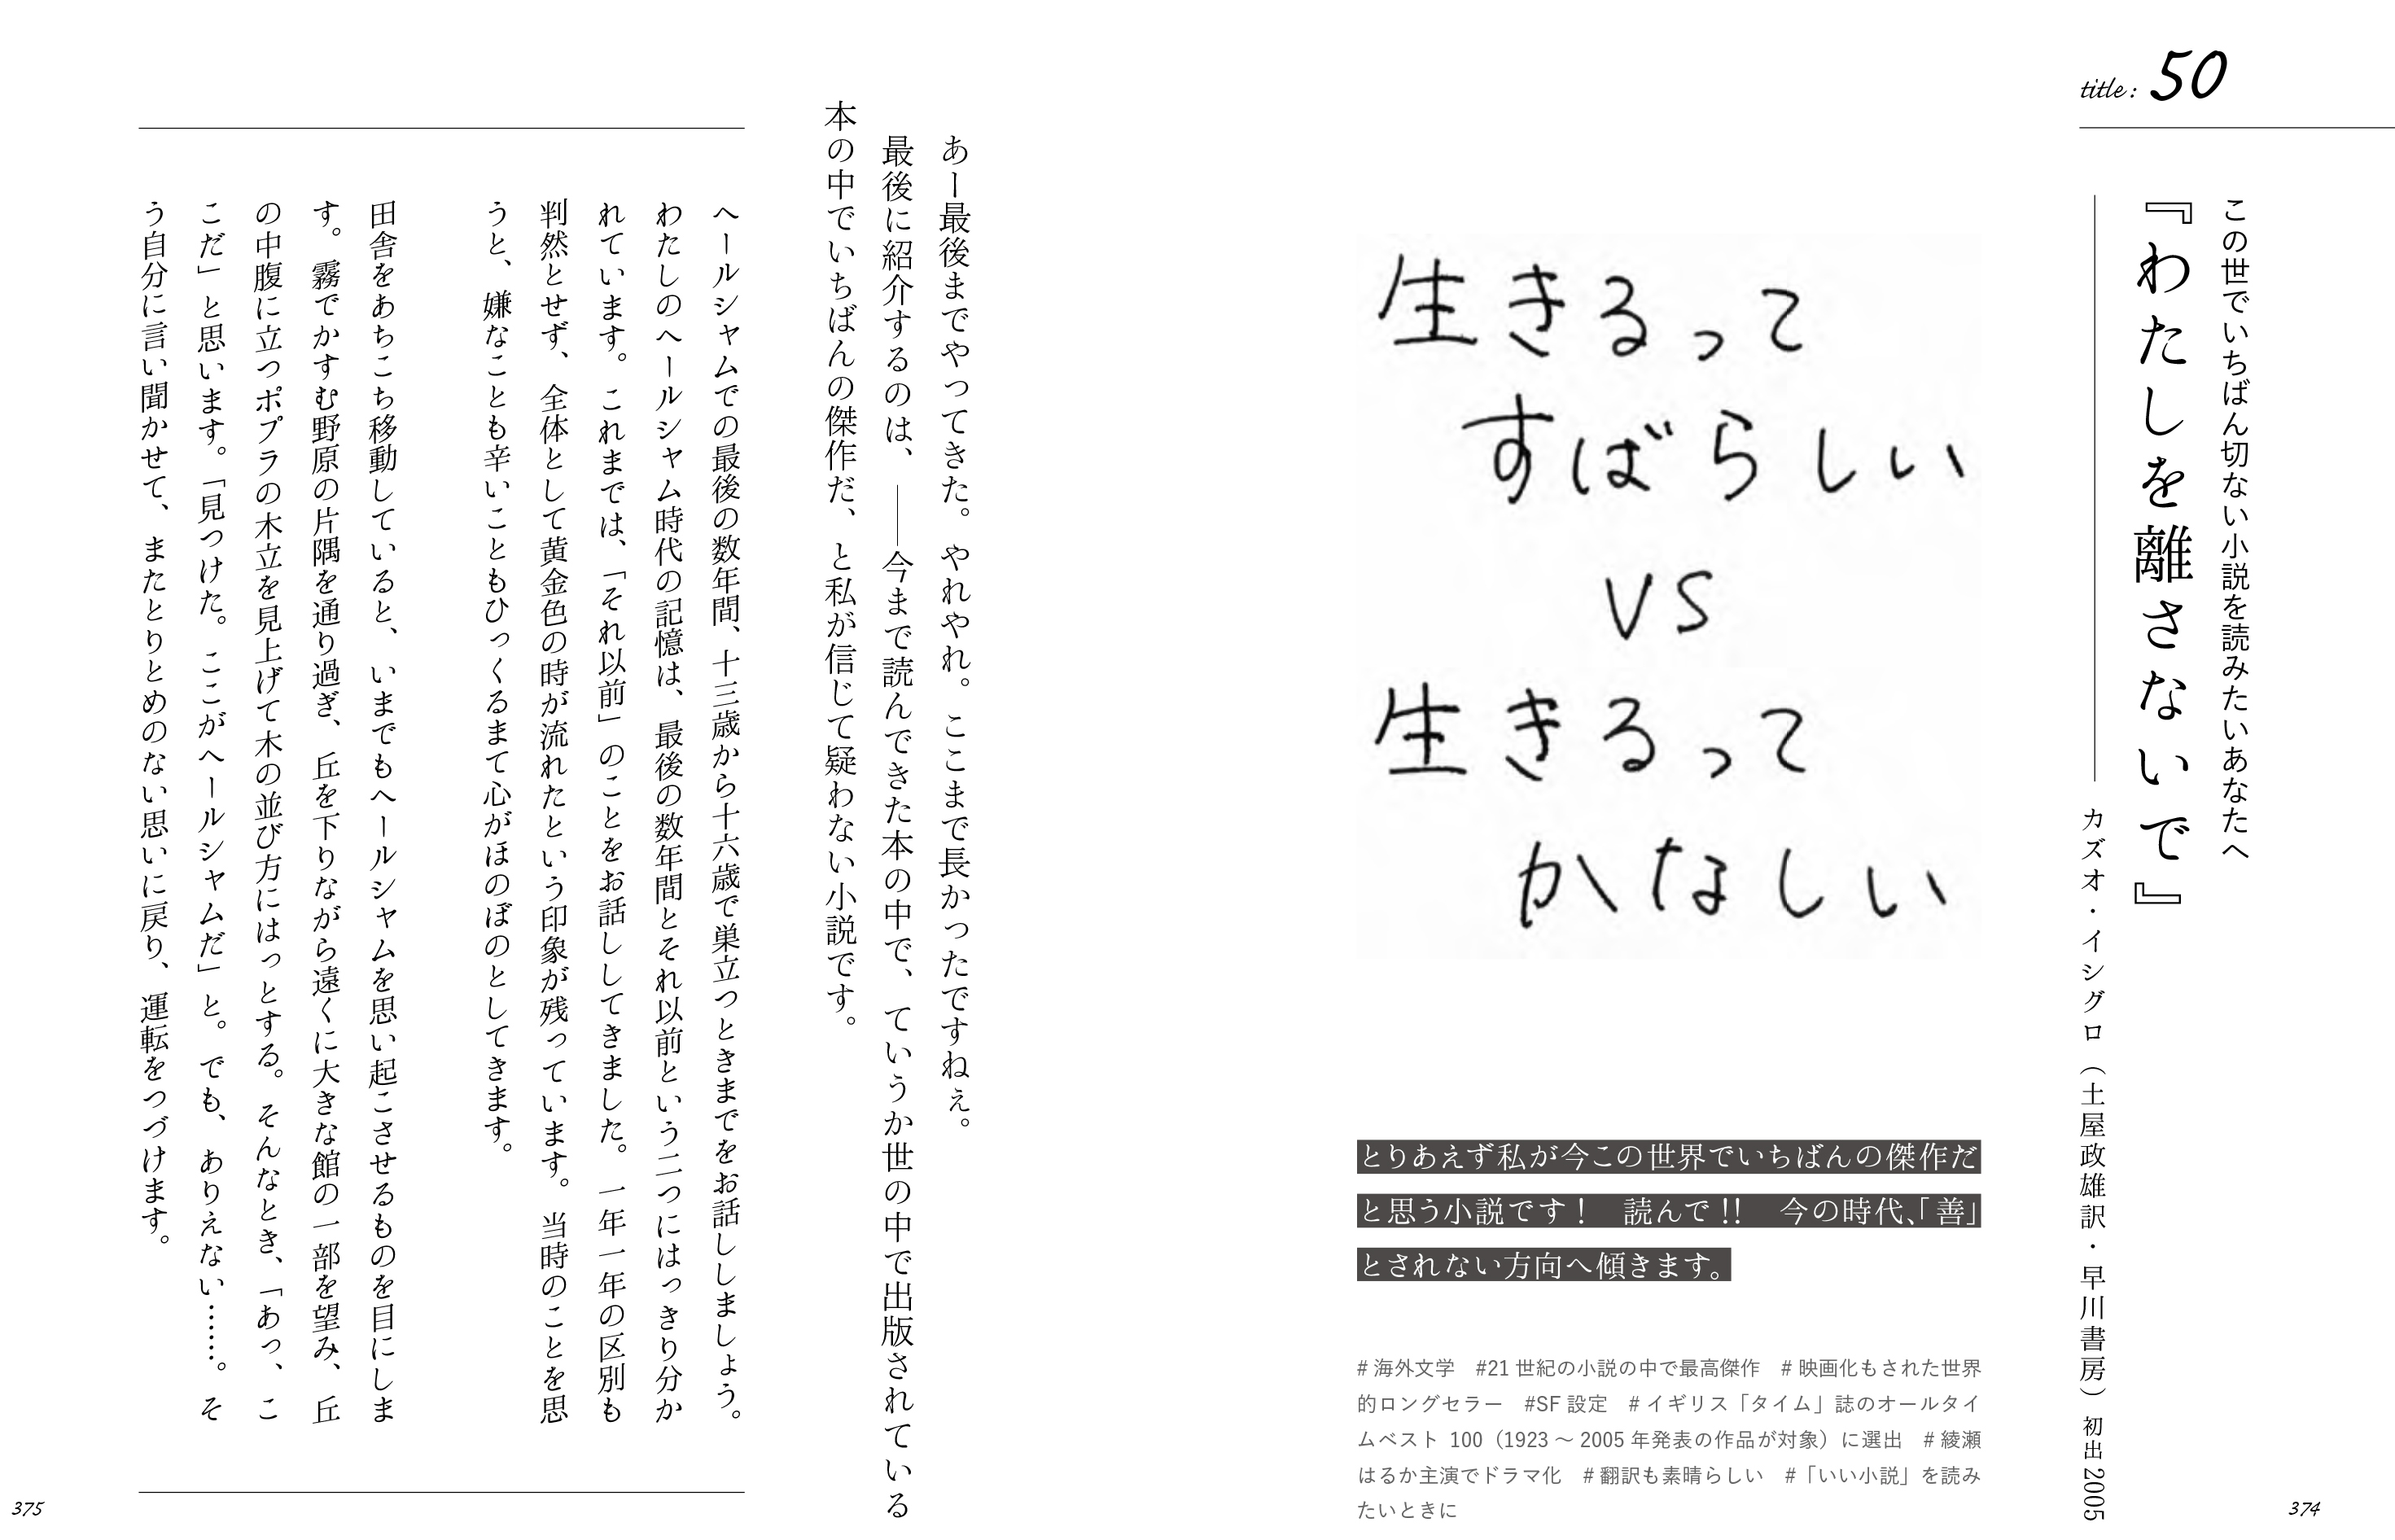 title: 50
この世でいちばん切ない小説を読みたいあなたへ
『わたしを離さないで』
カズオ・イシグロ（土屋政雄訳・早川書房）初出2005
生きるって
すばらしい
VS
生きるって
かなしい
とりあえず私が今この世界でいちばんの傑作だ
と思う小説です！　読んで!!　今の時代、「善」
とされない方向へ傾きます。
#海外文学　#21世紀の小説の中で最高傑作　#映画化もされた世界
的ロングセラー　#SF設定　#イギリス「タイム」誌のオールタイ
ムベスト100（1923～2005年発表の作品が対象）に選出　#綾瀬
はるか主演でドラマ化　#翻訳も素晴らしい　#「いい小説」を読み
たいときに
374
あー最後までやってきた。やれやれ。ここまで長かったですねぇ。
最後に紹介するのは、――今まで読んできた本の中で、ていうか世の中で出版されている
本の中でいちばんの傑作だ、と私が信じて疑わない小説です。
ヘールシャムでの最後の数年間、十三歳から十六歳で巣立つときまでをお話ししましょう。
わたしのヘールシャム時代の記憶は、最後の数年間とそれ以前という二つにはっきり分か
れています。これまでは、「それ以前」のことをお話ししてきました。一年一年の区別も
判然とせず、全体として黄金色の時が流れたという印象が残っています。当時のことを思
うと、嫌なことも辛いこともひっくるまて心がほのぼのとしてきます。
田舎をあちこち移動していると、いまでもヘールシャムを思い起こさせるものを目にしま
す。霧でかすむ野原の片隅を通り過ぎ、丘を下りながら遠くに大きな館の一部を望み、丘
の中腹に立つポプラの木立を見上げて木の並び方にはっとする。そんなとき、「あっ、こ
こだ」と思います。「見つけた。ここがヘールシャムだ」と。でも、ありえない……。そ
う自分に言い聞かせて、またとりとめのない思いに戻り、運転をつづけます。
375